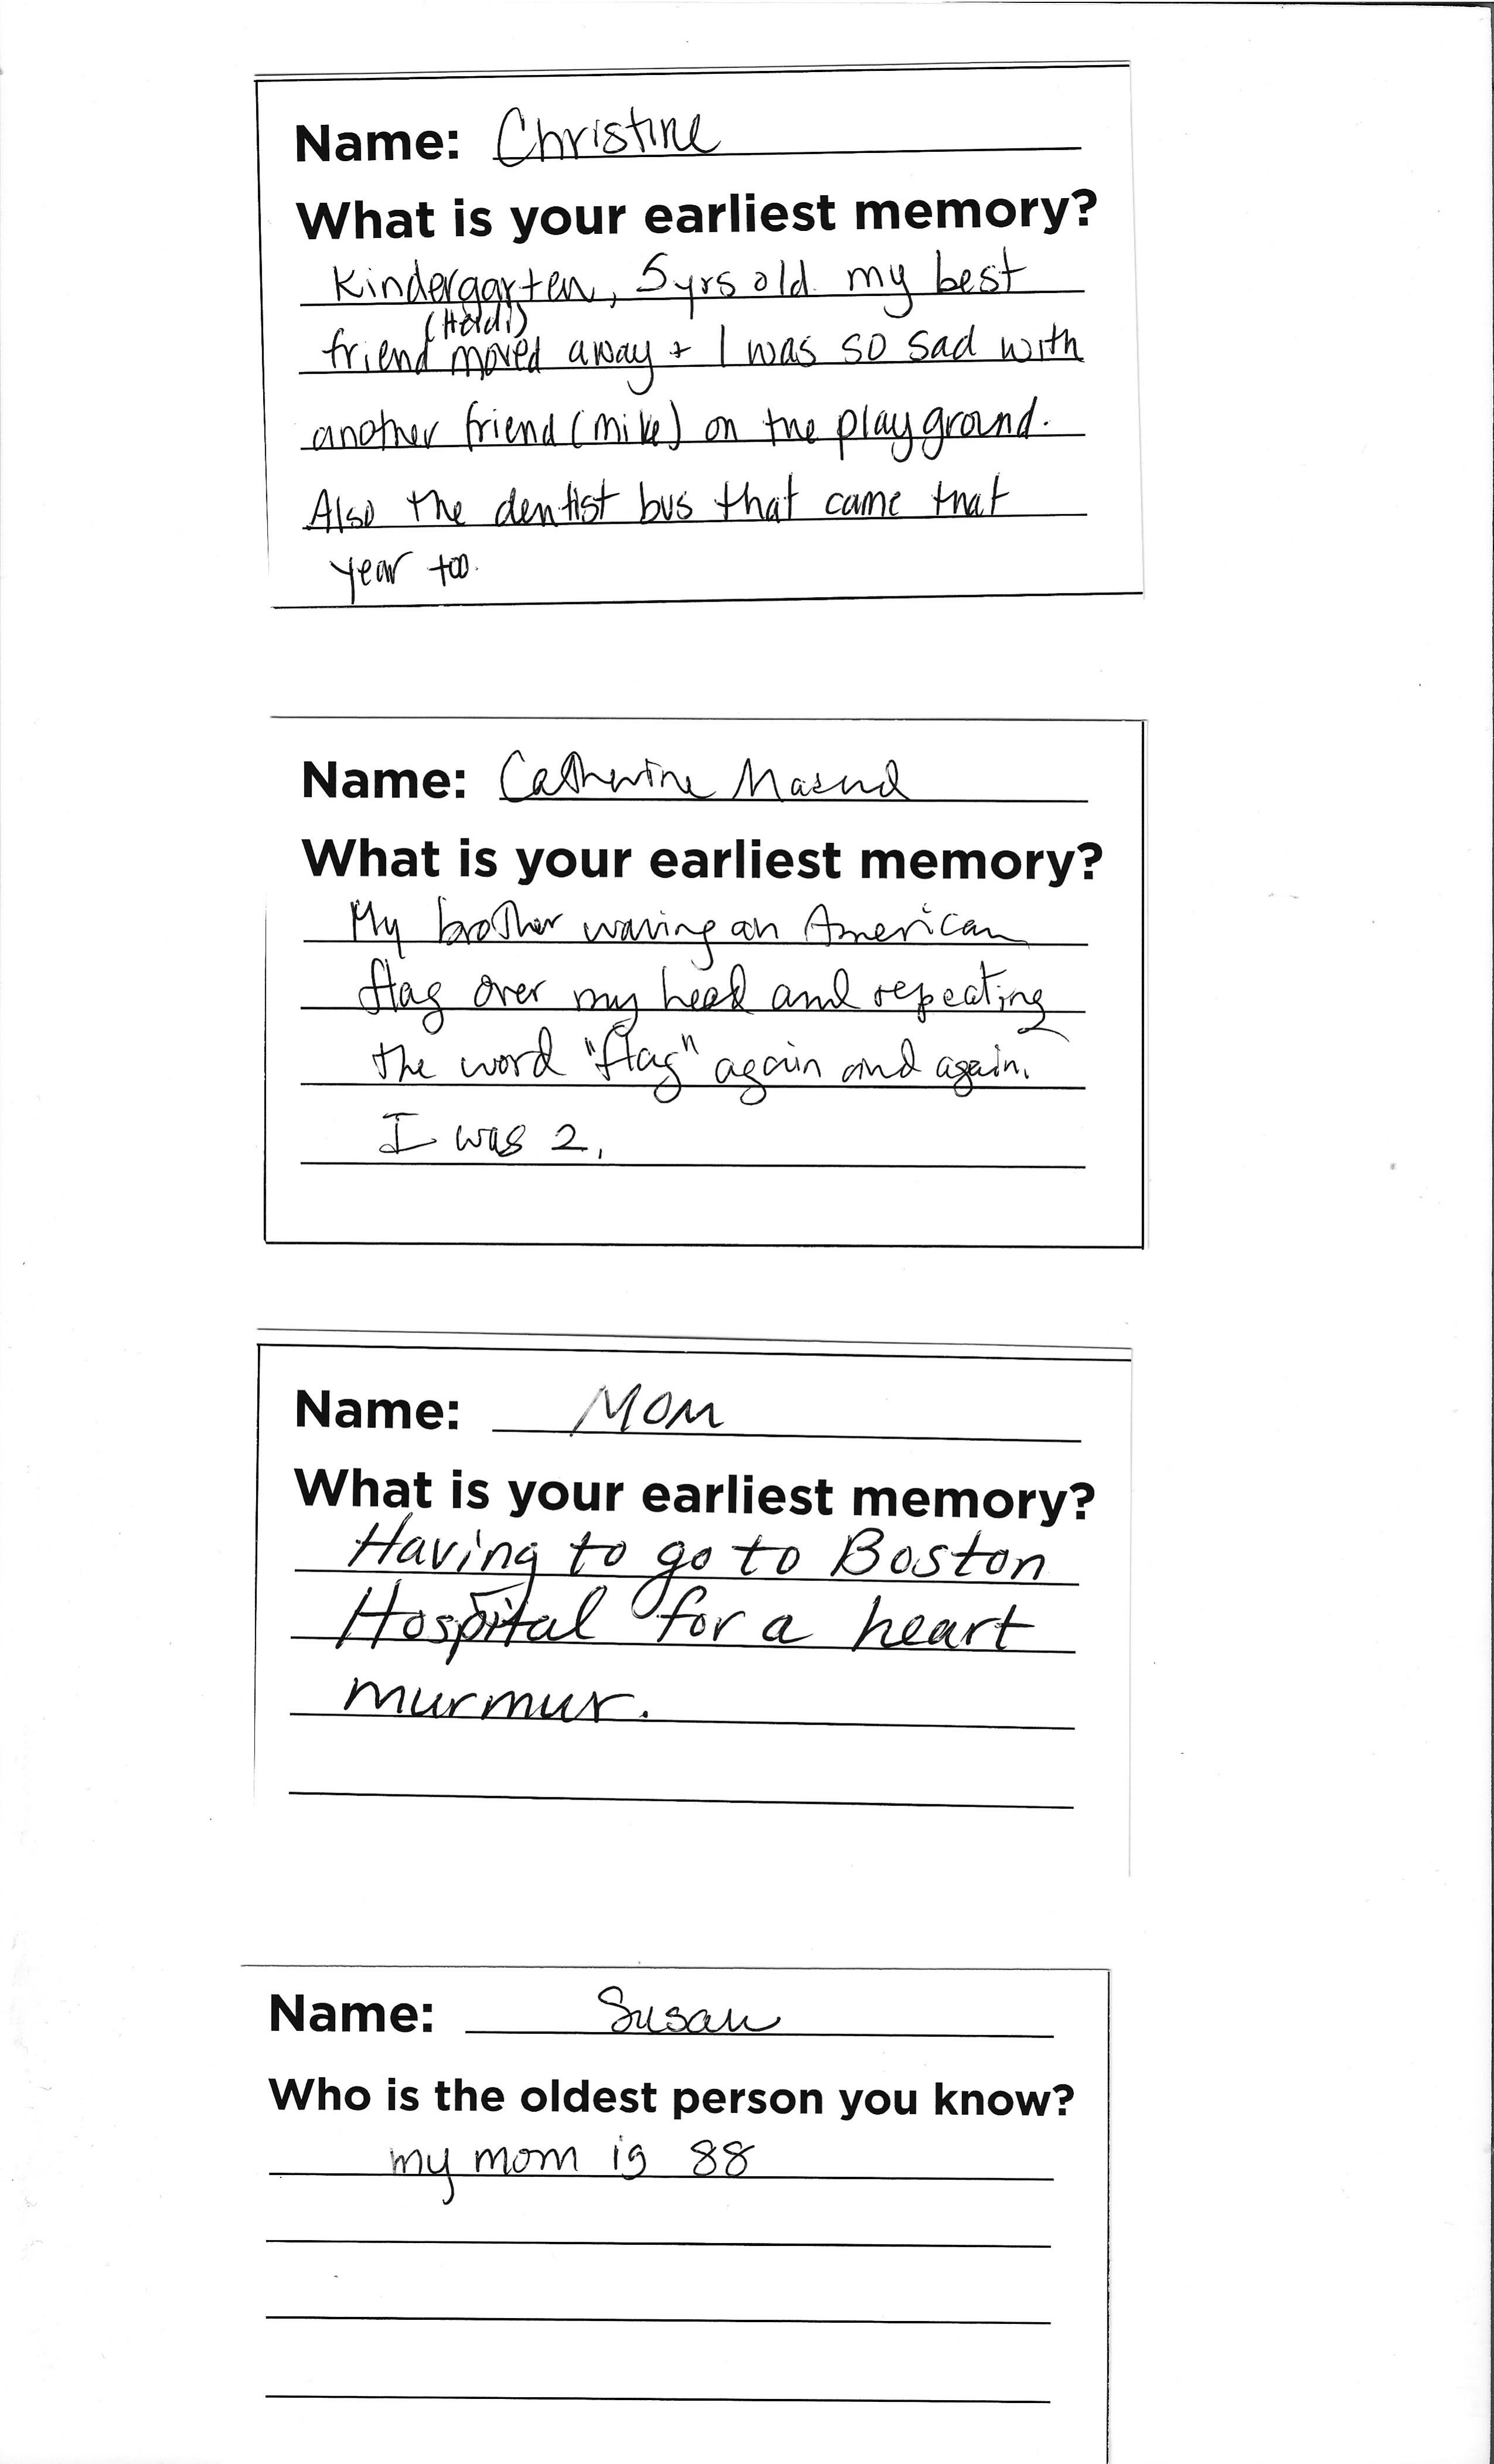 Name: Christine
What is your earliest memory?
Kindergarten, 5 yrs old my best
(Heidi)
friend moved away + I was so sad with
another friend (mike) on the playground.
Also the dentist bus that came that
year too.
Name: Catherine Masud
What is your earliest memory?
My brother waving an American
flag over my head and repeating
the word "flag" again and again.
I was 2.
Name: MOM
What is your earliest memory?
Having to go to Boston
Hospital for a heart
murmur.
Name: Susan
Who is the oldest person you know?
my mom is 88